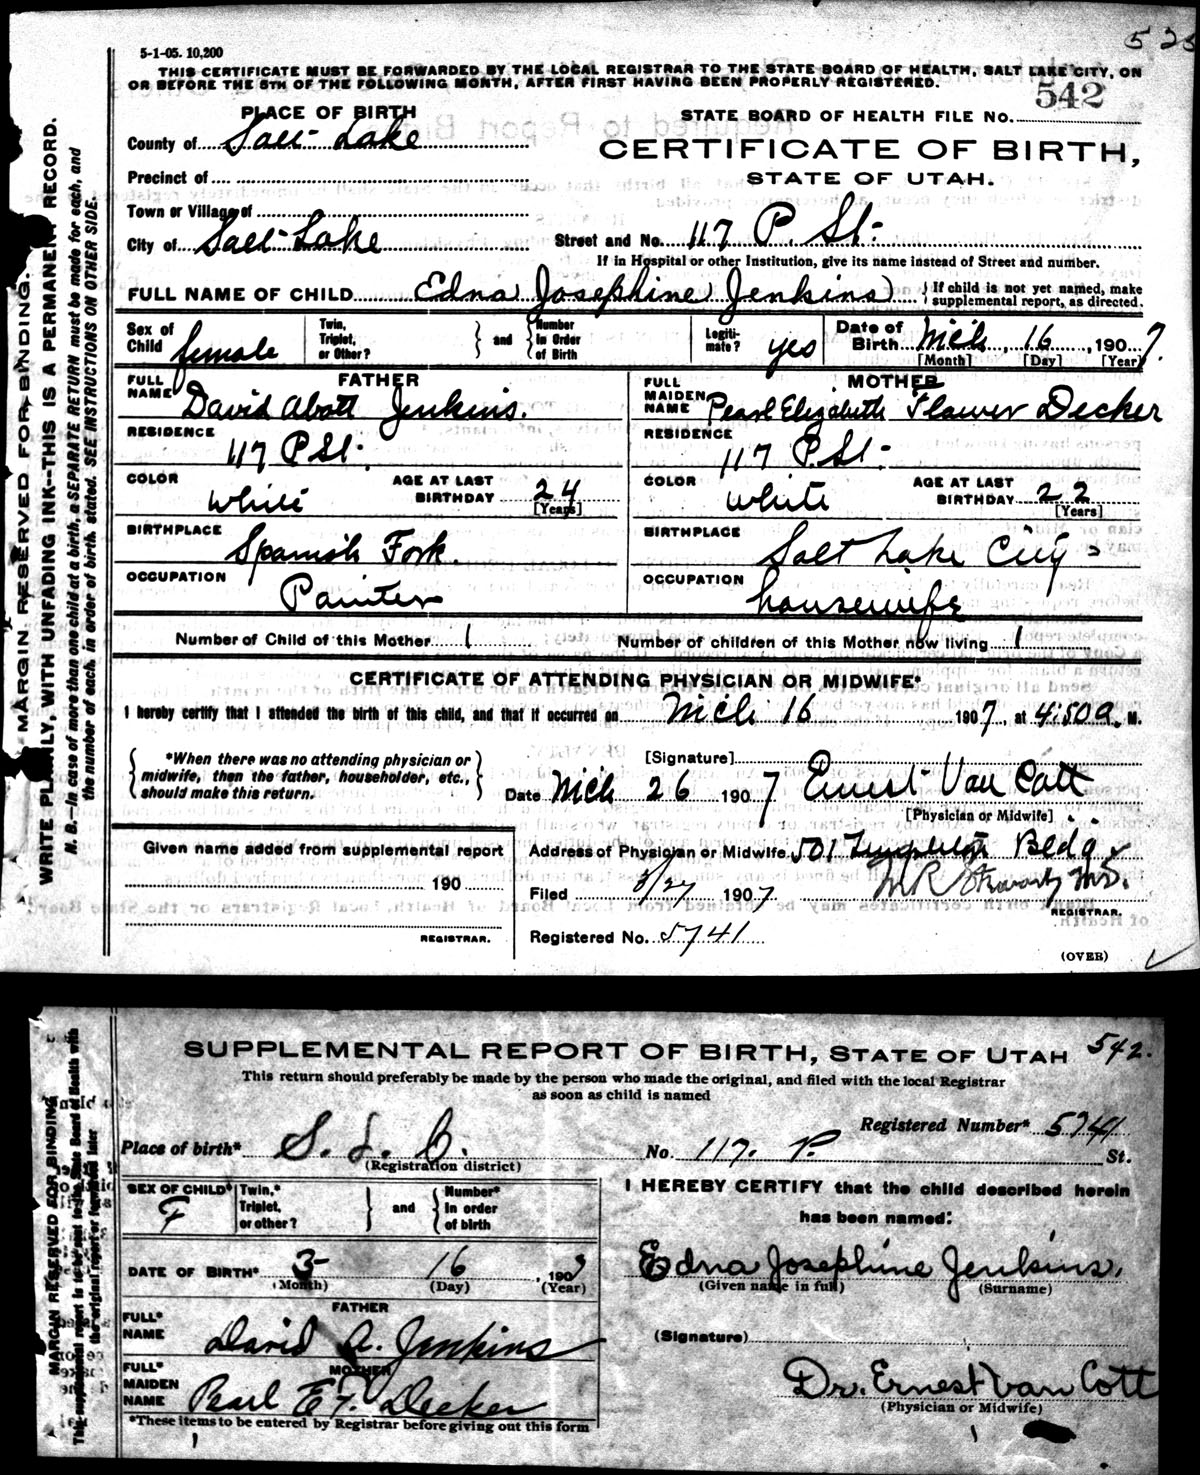 5-1-05. 10,200
THIS CERTIFICATE MUST BE FORWARDED BY THE LOCAL REGISTRAR TO THE STATE BOARD OF HEALTH, SALT LAKE CITY, ON
OR BEFORE THE 5TH OF THE FOLLOWING MONTH, AFTER FIRST HAVING BEEN PROPERLY REGISTERED.
542
PLACE OF BIRTH
STATE BOARD OF HEALTH FILE No.
County of Salt Lake
CERTIFICATE OF BIRTH,
Precinct of
STATE OF UTAH.
Town or Village of
City of Salt Lake
Street and No. 117 P. St.
If in Hospital or other Institution, give its name instead of Street and number.
FULL NAME OF CHILD Edna Josephine Jenkins } If child is not yet named, make supplemental report, as directed.
Sex of Child female Twin, Triplet, or Other? } and { Number in Order of Birth Legiti-mate? yes Date of Birth Mch 16, 1907.
[Month] [Day] [Year]
FATHER
FULL NAME David Abott Jenkins.
RESIDENCE 117 P St.
COLOR White AGE AT LAST BIRTHDAY 24 [Years]
BIRTHPLACE Spanish Fork.
OCCUPATION Painter
MOTHER
FULL MAIDEN NAME Pearl Elizabeth Flower Decker
RESIDENCE 117 P St.
COLOR White AGE AT LAST BIRTHDAY 22 [Years]
BIRTHPLACE Salt Lake City
OCCUPATION housewife
Number of Child of this Mother 1 Number of children of this Mother now living 1
CERTIFICATE OF ATTENDING PHYSICIAN OR MIDWIFE*
I hereby certify that I attended the birth of this child, and that it occurred on Mch 16 1907, at 4:50 a. M.
{ *When there was no attending physician or midwife, then the father, householder, etc., should make this return. }
[Signature]
Date Mch 26 1907 Ernest Van Cott
[Physician or Midwife]
Given name added from supplemental report
190
REGISTRAR.
Address of Physician or Midwife 501 Templeton Bldg
Filed 3/27 1907 M R Stewart M.D.
REGISTRAR.
Registered No. 5741
(OVER)
MARGIN RESERVED FOR BINDING.
WRITE PLAINLY, WITH UNFADING INK--THIS IS A PERMANENT RECORD.
N. B.—In case of more than one child at a birth, a SEPARATE RETURN must be made for each, and
the number of each, in order of birth, stated. SEE INSTRUCTIONS ON OTHER SIDE.
SUPPLEMENTAL REPORT OF BIRTH, STATE OF UTAH 542.
This return should preferably be made by the person who made the original, and filed with the local Registrar
as soon as child is named
Registered Number* 5741
Place of birth* S. L. C. No. 117. P. St.
(Registration district)
SEX OF CHILD* F Twin,* Triplet, or other? } and { Number* in order of birth
DATE OF BIRTH* 3- 16, 1907
(Month) (Day) (Year)
FATHER
FULL* NAME David A. Jenkins
MOTHER
FULL* MAIDEN NAME Pearl E F. Decker
*These items to be entered by Registrar before giving out this form
I HEREBY CERTIFY that the child described herein
has been named:
Edna Josephine Jenkins.
(Given name in full) (Surname)
(Signature)
Dr. Ernest Van Cott
(Physician or Midwife)
MARGIN RESERVED FOR BINDING
This supplemental report is to be sent to the State Board of Health with
the original report or forwarded later